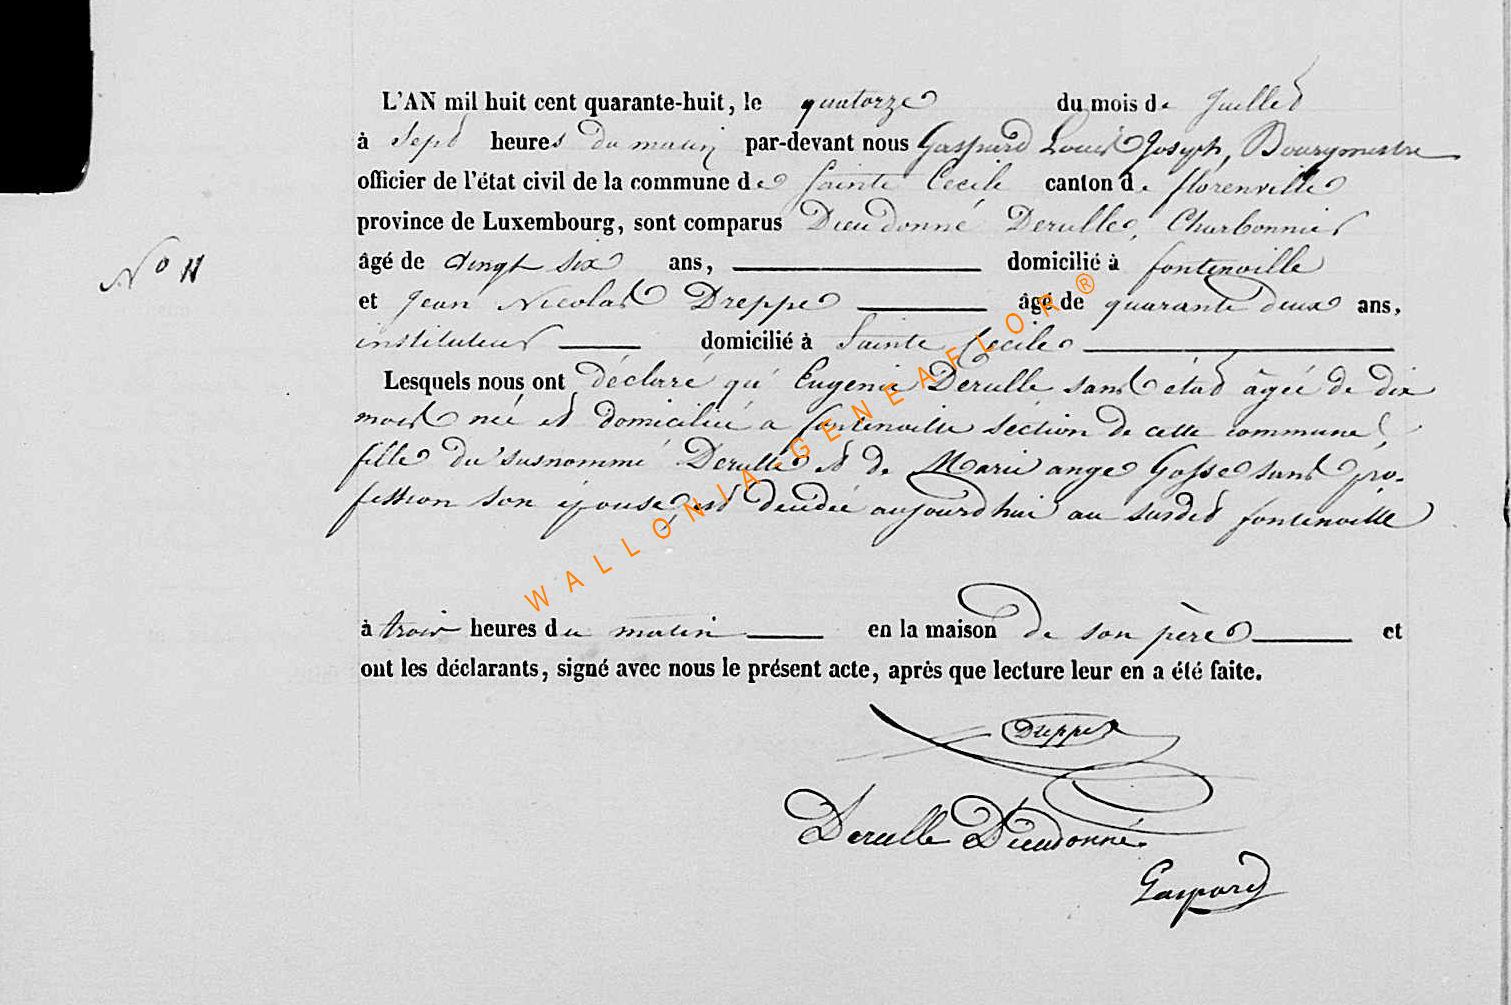 L'AN mil huit cent quarante-huit, le quatorze du mois de Juillet
à Sept heures du matin par-devant nous Gaspard Louis Joseph, Bourgmestre
officier de l'état civil de la commune de Sainte Cecile canton de florenville
province de Luxembourg, sont comparus Dieudonné Derulle, Charbonnier
âgé de vingt six ans, domicilié à fontenoille
N° 11
et Jean Nicolas Dreppe âgé de quarante deux ans,
instituteur domicilié à Sainte Cecile
Lesquels nous ont déclaré qu' Eugenie Derulle sans état âgée de dix
mois née et domiciliée a fontenoille séction de cette commune,
fille du susnommé Derulle et de Marie ange Gosse sans pro-
fession son épouse, est décédée aujourd'hui au susdit fontenoille
à trois heures du matin en la maison de son père et
ont les déclarants, signé avec nous le présent acte, après que lecture leur en a été faite.
WALLONIA-GENEAFLOR®
Dreppe
Derulle Dieudonné
Gaspard